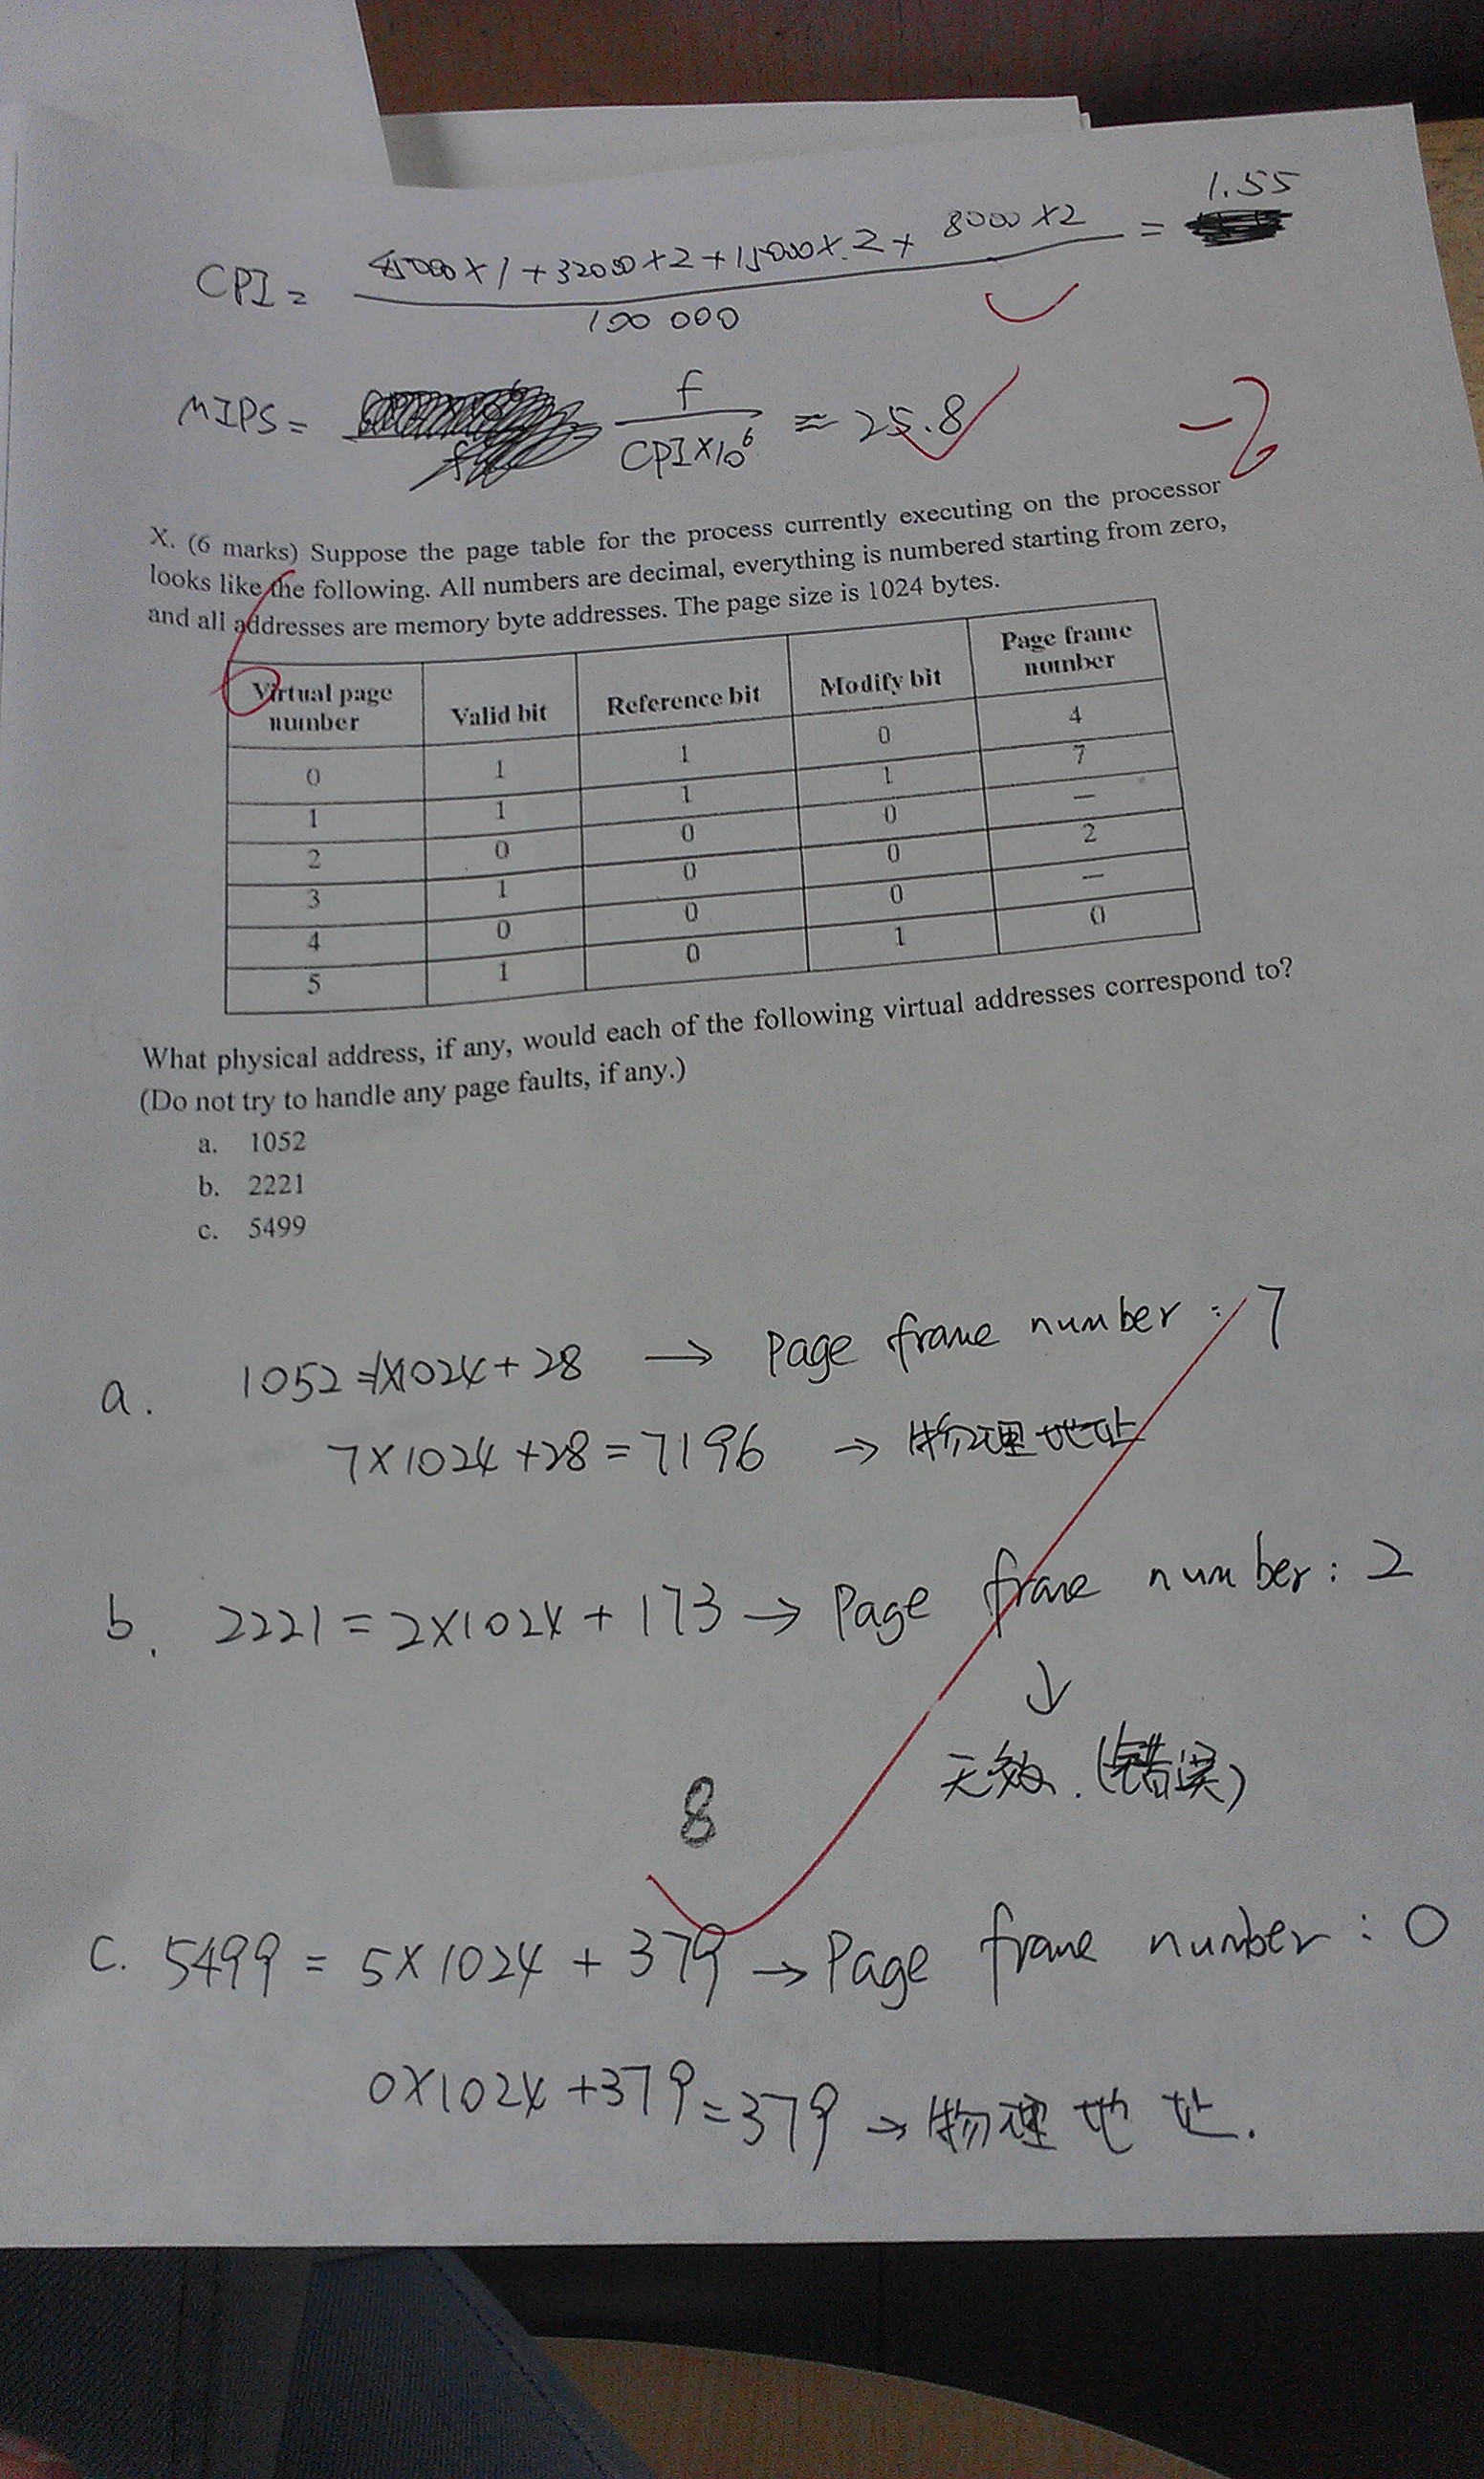 1.55
CPI = 45000×1+32000×2+15000×2+ 8000×2 =
100 000
MIPS = f / CPI×10⁶ ≈ 25.8
-2
X. (6 marks) Suppose the page table for the process currently executing on the processor
looks like the following. All numbers are decimal, everything is numbered starting from zero,
and all addresses are memory byte addresses. The page size is 1024 bytes.
Virtual page number Valid bit Reference bit Modify bit Page frame number
0 1 1 0 4
1 1 1 1 7
2 0 0 0 —
3 1 0 0 2
4 0 0 0 —
5 1 0 1 0
What physical address, if any, would each of the following virtual addresses correspond to?
(Do not try to handle any page faults, if any.)
a. 1052
b. 2221
c. 5499
a. 1052=1×1024+28 → Page frame number : 7
7×1024+28=7196 → 物理地址
b. 2221=2×1024+173→ Page frame number: 2
↓
无效.(错误)
8
C. 5499 = 5×1024 + 379 → Page frame number : 0
0×1024+379=379 → 物理地址.